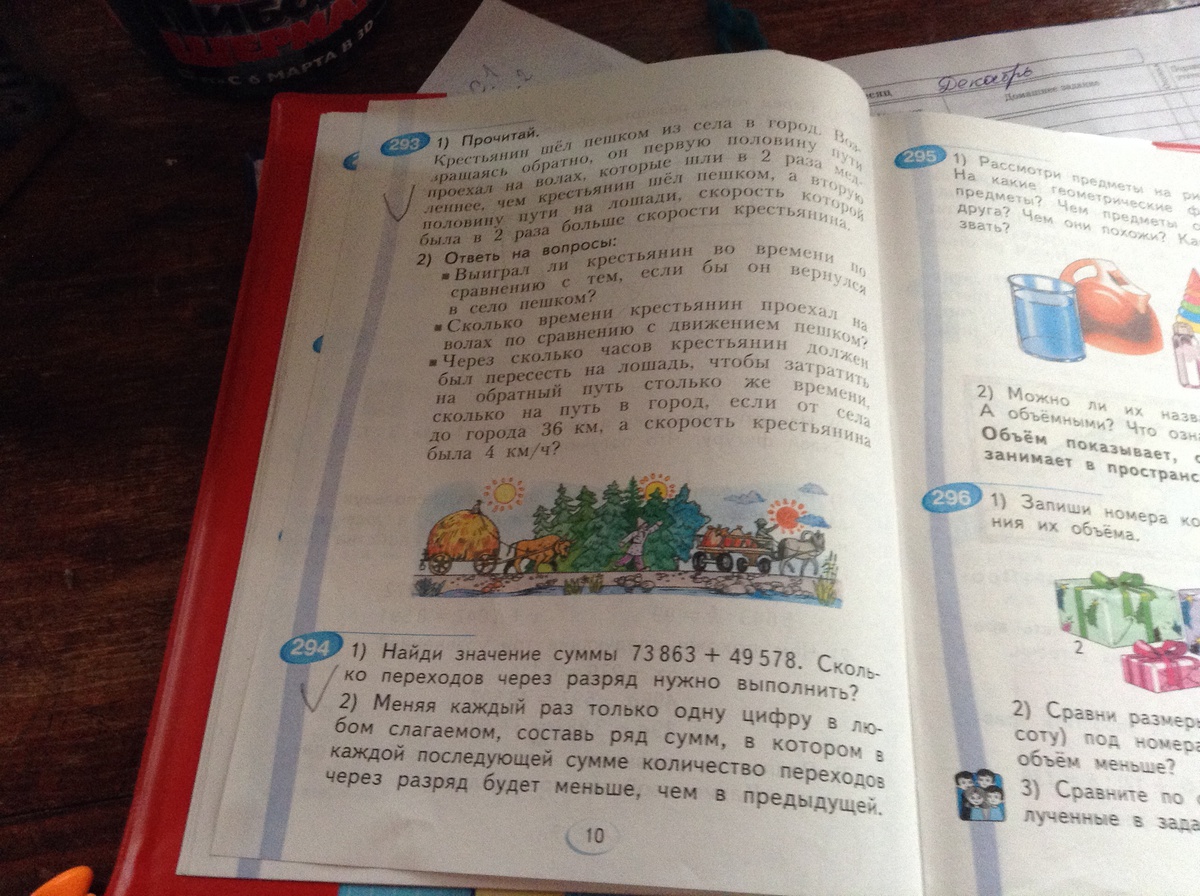 С 6 МАРТА В 3D
Декабрь
Домашнее задание
293 1) Прочитай.
Крестьянин шёл пешком из села в город. Воз-
вращаясь обратно, он первую половину пути
проехал на волах, которые шли в 2 раза мед-
леннее, чем крестьянин шёл пешком, а вторую
половину пути на лошади, скорость которой
была в 2 раза больше скорости крестьянина.
2) Ответь на вопросы:
▪ Выиграл ли крестьянин во времени по
сравнению с тем, если бы он вернулся
в село пешком?
▪ Сколько времени крестьянин проехал на
волах по сравнению с движением пешком?
▪ Через сколько часов крестьянин должен
был пересесть на лошадь, чтобы затратить
на обратный путь столько же времени,
сколько на путь в город, если от села
до города 36 км, а скорость крестьянина
была 4 км/ч?
294 1) Найди значение суммы 73 863 + 49 578. Сколь-
ко переходов через разряд нужно выполнить?
2) Меняя каждый раз только одну цифру в лю-
бом слагаемом, составь ряд сумм, в котором в
каждой последующей сумме количество переходов
через разряд будет меньше, чем в предыдущей.
10
295 1) Рассмотри предметы на
На какие геометрические
предметы? Чем предметы
друга? Чем они похожи?
звать?
2) Можно ли их
А объёмными? Что
Объём показывает,
занимает в
296 1) Запиши номера
ния их объёма.
2
2) Сравни
соту) под
объём меньше?
3) Сравните по
лученные в